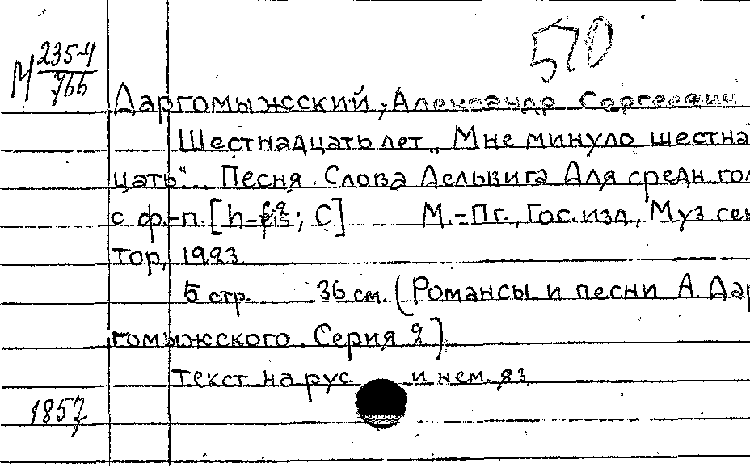 570
М 235-4/766
Даргомыжский, Александр Сергеевич
Шестнадцать лет „Мне минуло шестна
цать". Песня. Слова Дельвига Для средн. гол
с ф.-п. [h- ; C] М.-Пг., Гос. изд., Муз сек
тор, 1923.
5 стр. 36 см. (Романсы и песни А. Дар
гомыжского. Серия 2)
Текст на рус и нем. яз
1857